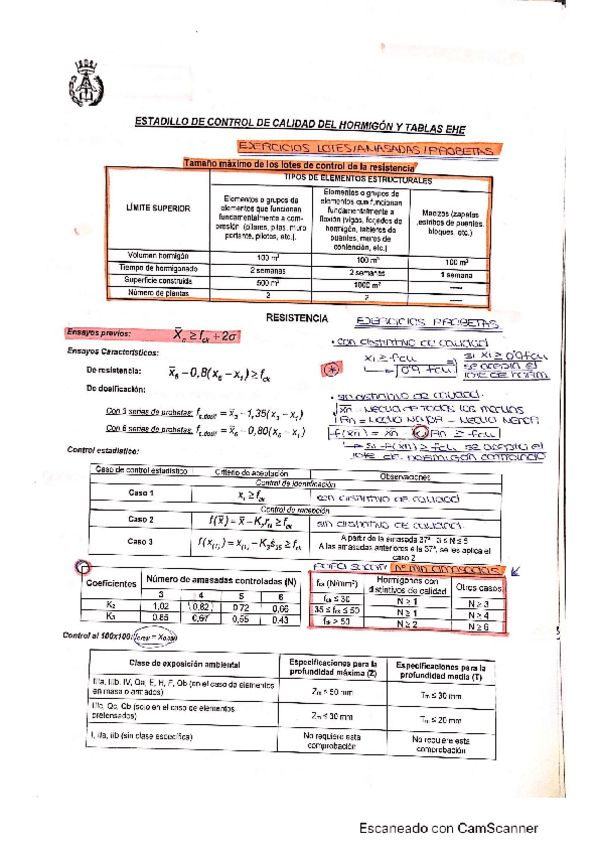 ESTADILLO DE CONTROL DE CALIDAD DEL HORMIGÓN Y TABLAS EHE
EJERCICIOS LOTES/AMASADAS/PROBETAS
Tamaño máximo de los lotes de control de la resistencia
TIPOS DE ELEMENTOS ESTRUCTURALES
LÍMITE SUPERIOR
Elementos o grupos de elementos que funcionan fundamentalmente a compresión (pilares, pilas, muro portante, pilotes, etc.).
Elementos o grupos de elementos que funcionan fundamentalmente a flexión (vigas, forjados de hormigón, tableros de puentes, muros de contención, etc.)
Macizos (zapatas, estribos de puentes, bloques, etc.)
Volumen hormigón 100 m³ 100 m³ 100 m³
Tiempo de hormigonado 2 semanas 2 semanas 1 semana
Superficie construida 500 m² 1000 m² -----
Número de plantas 2 2 -----
RESISTENCIA
EJERCICIOS PROBETAS
Ensayos previos: X̄n ≥ fck + 2σ
Ensayos Característicos:
De resistencia: x̄6 – 0,8(x6 – x1) ≥ fck
De dosificación:
Con 3 series de probetas: = x̄3 – 1,35(x3 – x1)
Con 6 series de probetas: = x̄6 – 0,80(x6 – x1)
• CON DISTINTIVO DE CALIDAD
xi ≥ fcu
0'9 fcu
si xi ≥ 0'9 fcu
se acepta el
LOTE DE HORM.
• SIN DISTINTIVO DE CALIDAD
x̄n = MEDIA DE TODOS LOS MEDIOS
Rn = MEDIO MAYOR – MEDIO MENOR
f(x̄n) = x̄n – Rn ≥ fcu
si f(x̄n) ≥ fcu se acepta el
Control estadístico:
Caso de control estadístico Criterio de aceptación Observaciones
Control de identificación
Caso 1 x1 ≥ fck CON DISTINTIVO DE CALIDAD
Control de recepción
Caso 2 f(x̄) = x̄ – K2rN ≥ fck SIN DISTINTIVO DE CALIDAD
Caso 3 f(x(1)) = x(1) – K3s35 ≥ fck A partir de la amasada 37ª 3 ≤ N ≤ 6
A las amasadas anteriores a la 37ª, se les aplica el caso 2
Nº MIN AMASADAS
Coeficientes Número de amasadas controladas (N)
3 4 5 6
K2 1,02 0,82 0,72 0,66
K3 0,85 0,67 0,55 0,43
fck (N/mm²) Hormigones con distintivos de calidad Otros casos
fck ≤ 30 N ≥ 1 N ≥ 3
35 ≤ fck ≤ 50 N ≥ 1 N ≥ 4
fck > 50 N ≥ 2 N ≥ 6
Control al 100x100:
Clase de exposición ambiental Especificaciones para la profundidad máxima (Z) Especificaciones para la profundidad media (T)
IIIa, IIIb, IV, Qa, E, H, F, Qb (en el caso de elementos en masa o armados) Zm ≤ 50 mm Tm ≤ 30 mm
IIIc, Qc, Qb (solo en el caso de elementos pretensados) Zm ≤ 30 mm Tm ≤ 20 mm
I, IIa, IIb (sin clase específica) No requiere esta comprobación No requiere esta comprobación
Escaneado con CamScanner